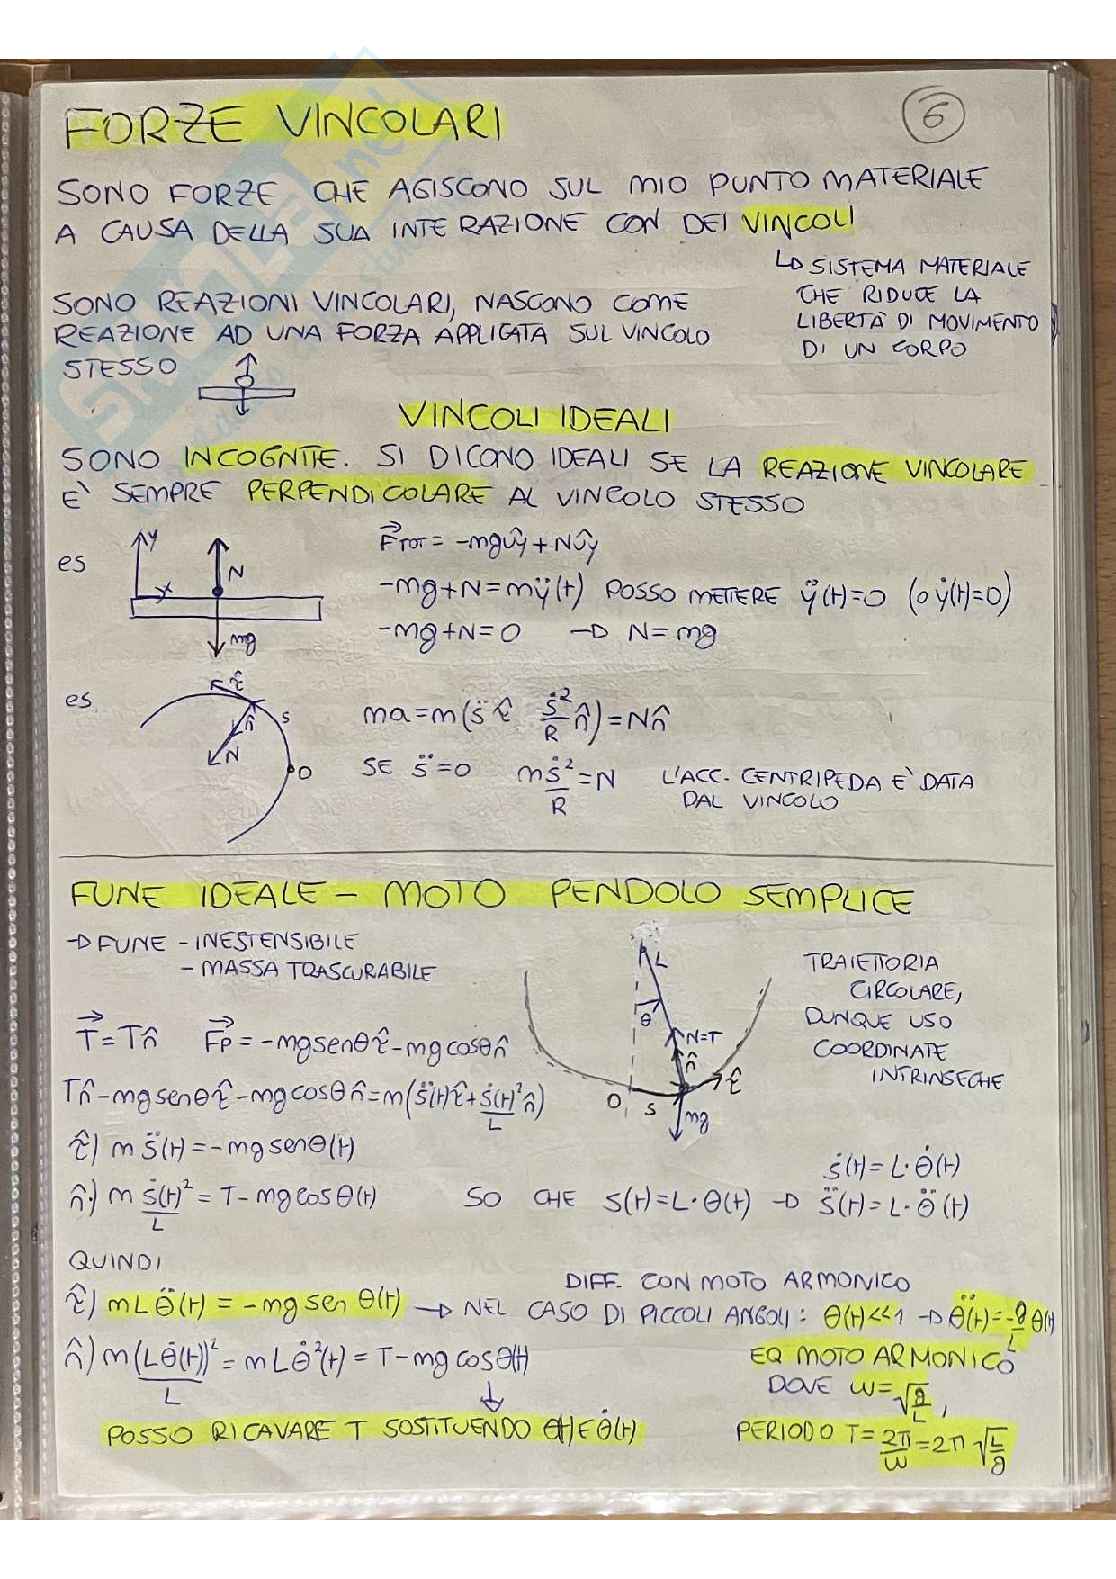 6
FORZE VINCOLARI
SONO FORZE CHE AGISCONO SUL MIO PUNTO MATERIALE
A CAUSA DELLA SUA INTERAZIONE CON DEI VINCOLI
↳ SISTEMA MATERIALE
CHE RIDUCE LA
LIBERTÀ DI MOVIMENTO
DI UN CORPO
SONO REAZIONI VINCOLARI, NASCONO COME
REAZIONE AD UNA FORZA APPLICATA SUL VINCOLO
STESSO
VINCOLI IDEALI
SONO INCOGNITE. SI DICONO IDEALI SE LA REAZIONE VINCOLARE
E' SEMPRE PERPENDICOLARE AL VINCOLO STESSO
es
y
x
N
mg
F⃗TOT = -mgûy + Nûy
-mg+N=mÿ(t) POSSO METTERE ÿ(t)=0 (o ẏ(t)=0)
-mg+N=0 → N=mg
es
τ̂
n̂
s
N
O
ma=m(s̈ τ̂ ṡ²/R n̂)=Nn̂
SE s̈=0 mṡ²/R=N L'ACC. CENTRIPEDA E' DATA
DAL VINCOLO
FUNE IDEALE - MOTO PENDOLO SEMPLICE
→ FUNE - INESTENSIBILE
- MASSA TRASCURABILE
L
θ
N=T
n̂
τ̂
O
s
mg
TRAIETTORIA
CIRCOLARE,
DUNQUE USO
COORDINATE
INTRINSECHE
T⃗=Tn̂ F⃗p=-mgsenθτ̂-mgcosθn̂
Tn̂-mgsenθτ̂-mgcosθn̂=m(s̈(t)τ̂+ṡ(t)²/L n̂)
τ̂) m s̈(t)=-mgsenθ(t)
n̂) m ṡ(t)²/L = T-mgcosθ(t) SO CHE s(t)=L·θ(t) → ṡ(t)=L·θ̇(t)
s̈(t)=L·θ̈(t)
QUINDI
DIFF. CON MOTO ARMONICO
τ̂) mLθ̈(t) = -mg sen θ(t) → NEL CASO DI PICCOLI ANGOLI: θ(t)<<1 → θ̈(t)=-g/L θ(t)
n̂) m(Lθ̇(t))²/L = mLθ̇²(t) = T-mgcosθ(t)
EQ MOTO ARMONICO
DOVE ω=√g/L,
POSSO RICAVARE T SOSTITUENDO θ(t) E θ̇(t)
PERIODO T=2π/ω=2π√L/g